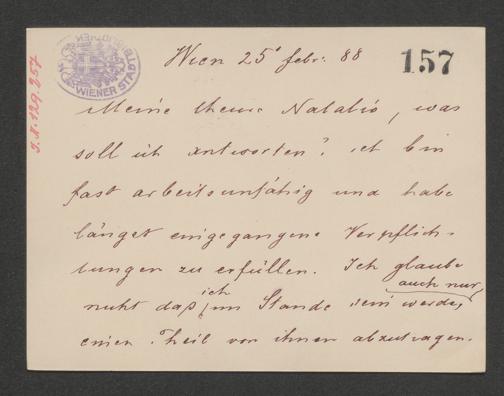 Wien 25' febr. 88
157
WIENER STADT
J.N. 129.257
Meine theure Natalie, was
soll ich antworten? ich bin
fast arbeitsunfähig und habe
längst eingegangene Verpflich-
tungen zu erfüllen. Ich glaube
nicht daß ich im Stande sein werde, auch nur
einen Theil von ihnen abzutragen.